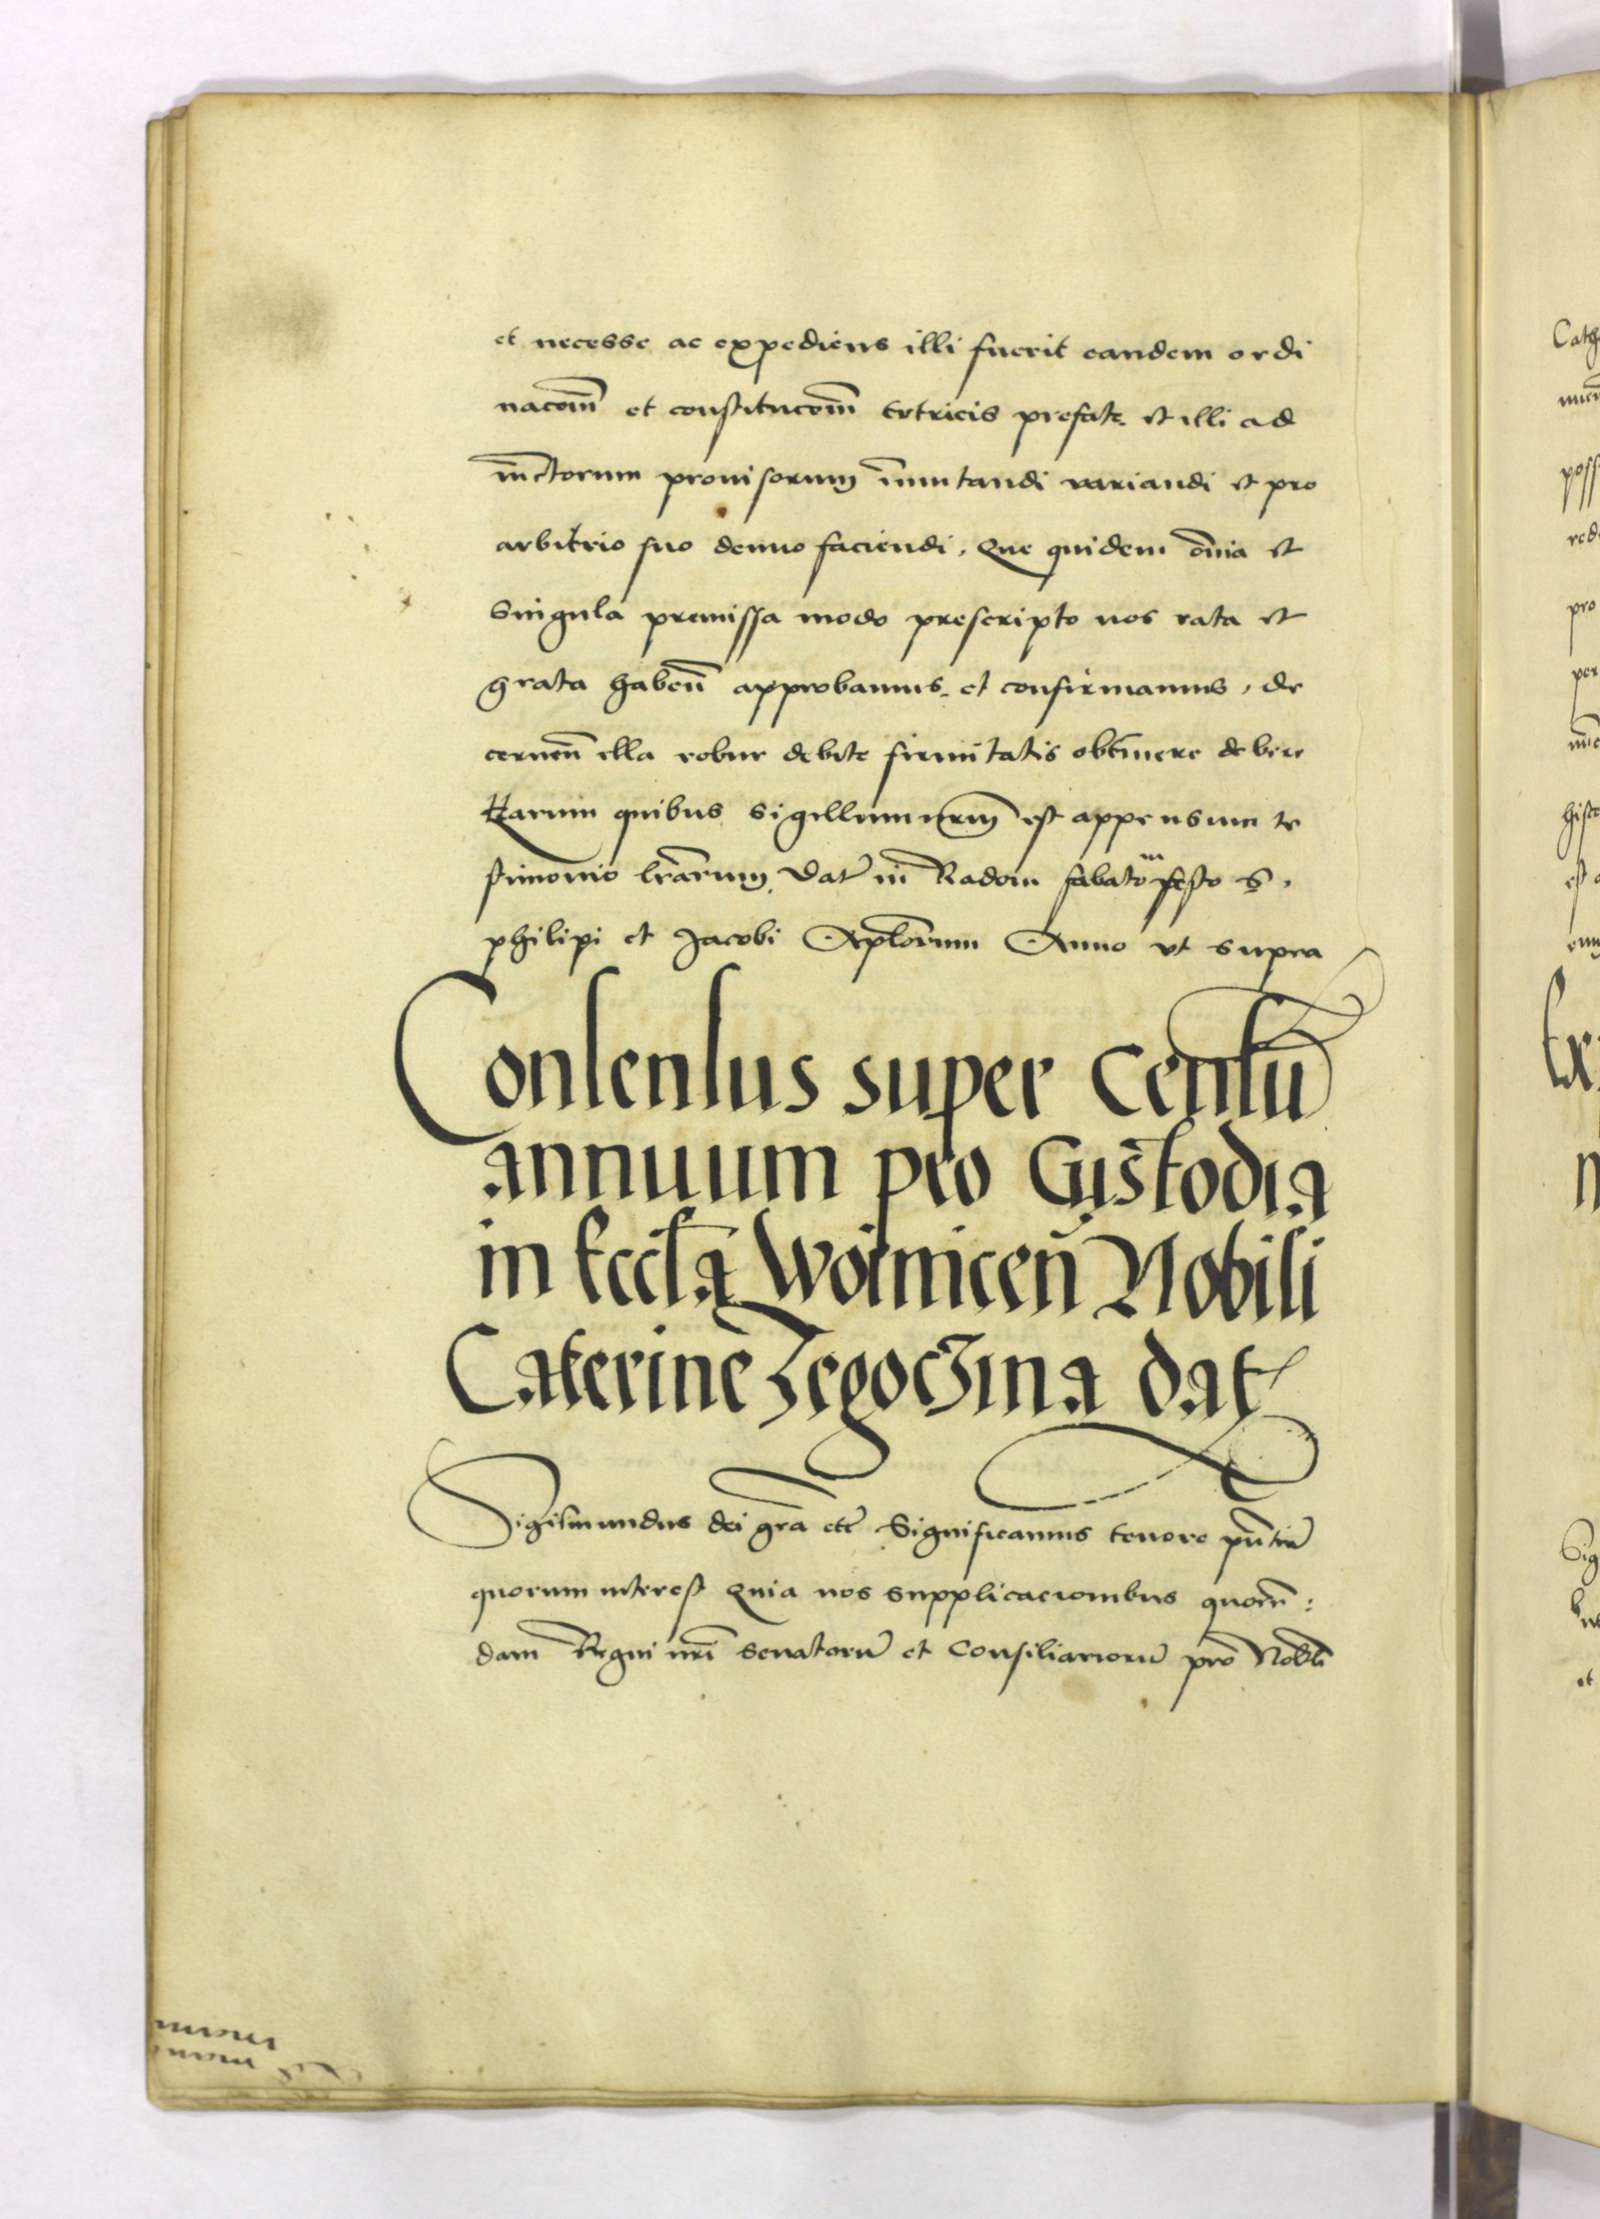 et necesse ac expediens illi fuerit eandem ordi
nacoem et constitucoem tutricis prefate et illi ad
iunctorum provisorum immutandi variandi et pro
arbitrio suo denuo faciendi, Que quidem omnia et
Singula premissa modo prescripto nos rata et
grata haben approbamus et confirmamus, de
cernen illa robur debite firmitatis obtinere debere
Harum quibus sigillum nrum est appensum te
stimonio lrarum, Dat in Radom sabato in festo S.
philipi et Jacobi Aplorum Anno ut supra
Consensus super Censu
annuum pro Custodia
in Eccla Woinicen Nobili
Caterine Zegoczina dat
Sigismundus dei gra etc Significamus tenore pntiu
quorum interest Quia nos supplicacionibus quorun:
dam Regni nri senatoru et Consiliarioru pro Nobli